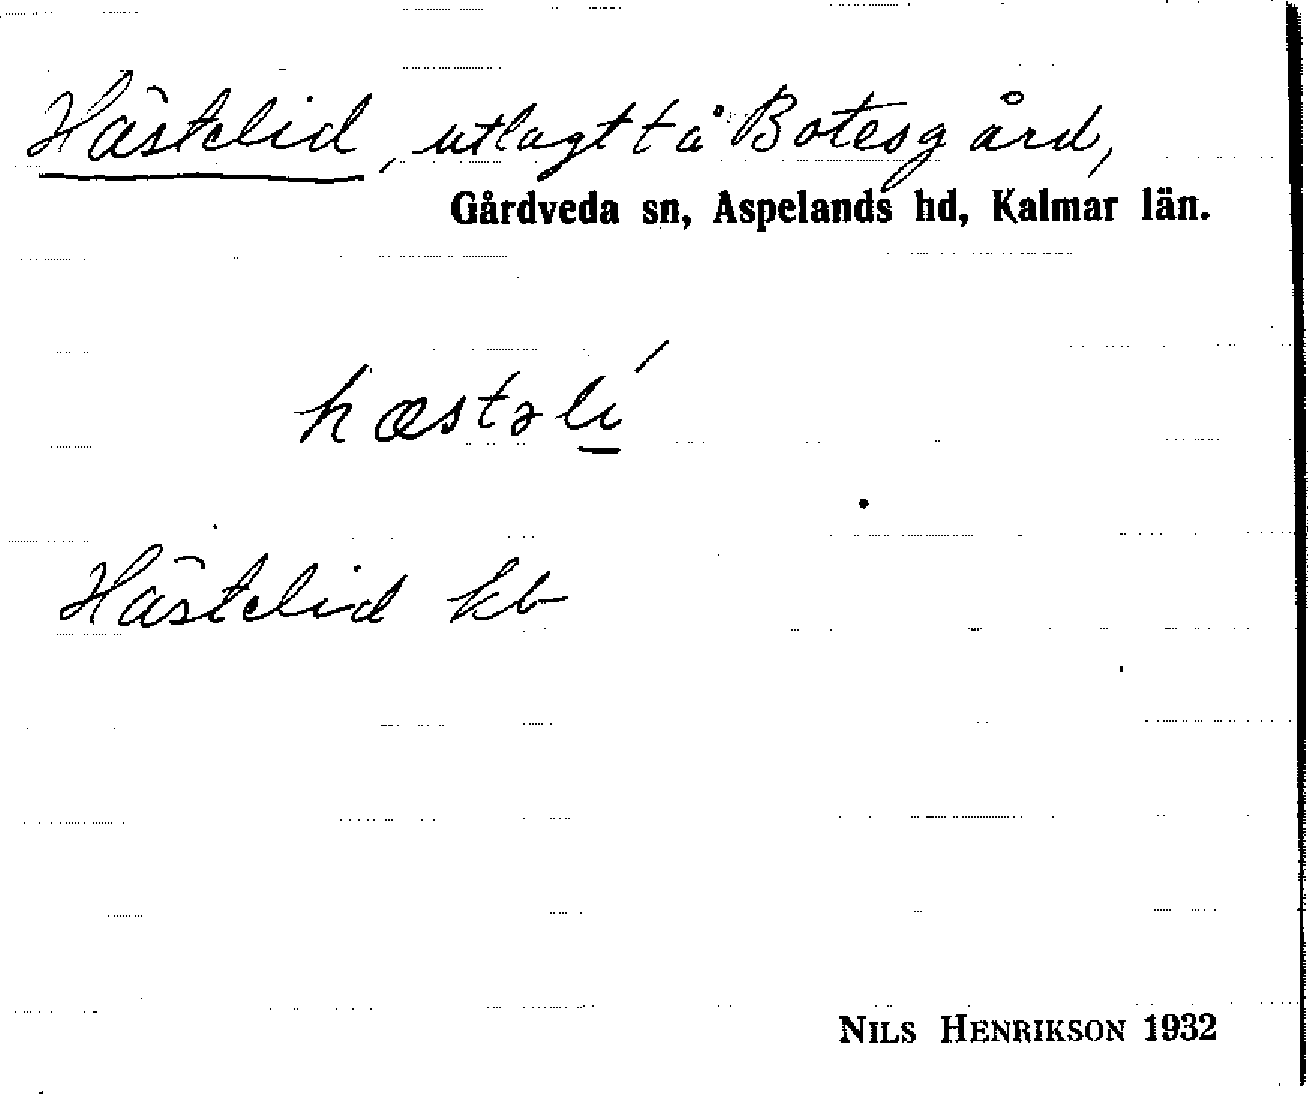 Hästelid, utlagt t å Botesgård,
Gårdveda sn, Aspelands hd, Kalmar län.
hæstəli ́
Hästelid kb
NILS HENRIKSON 1932